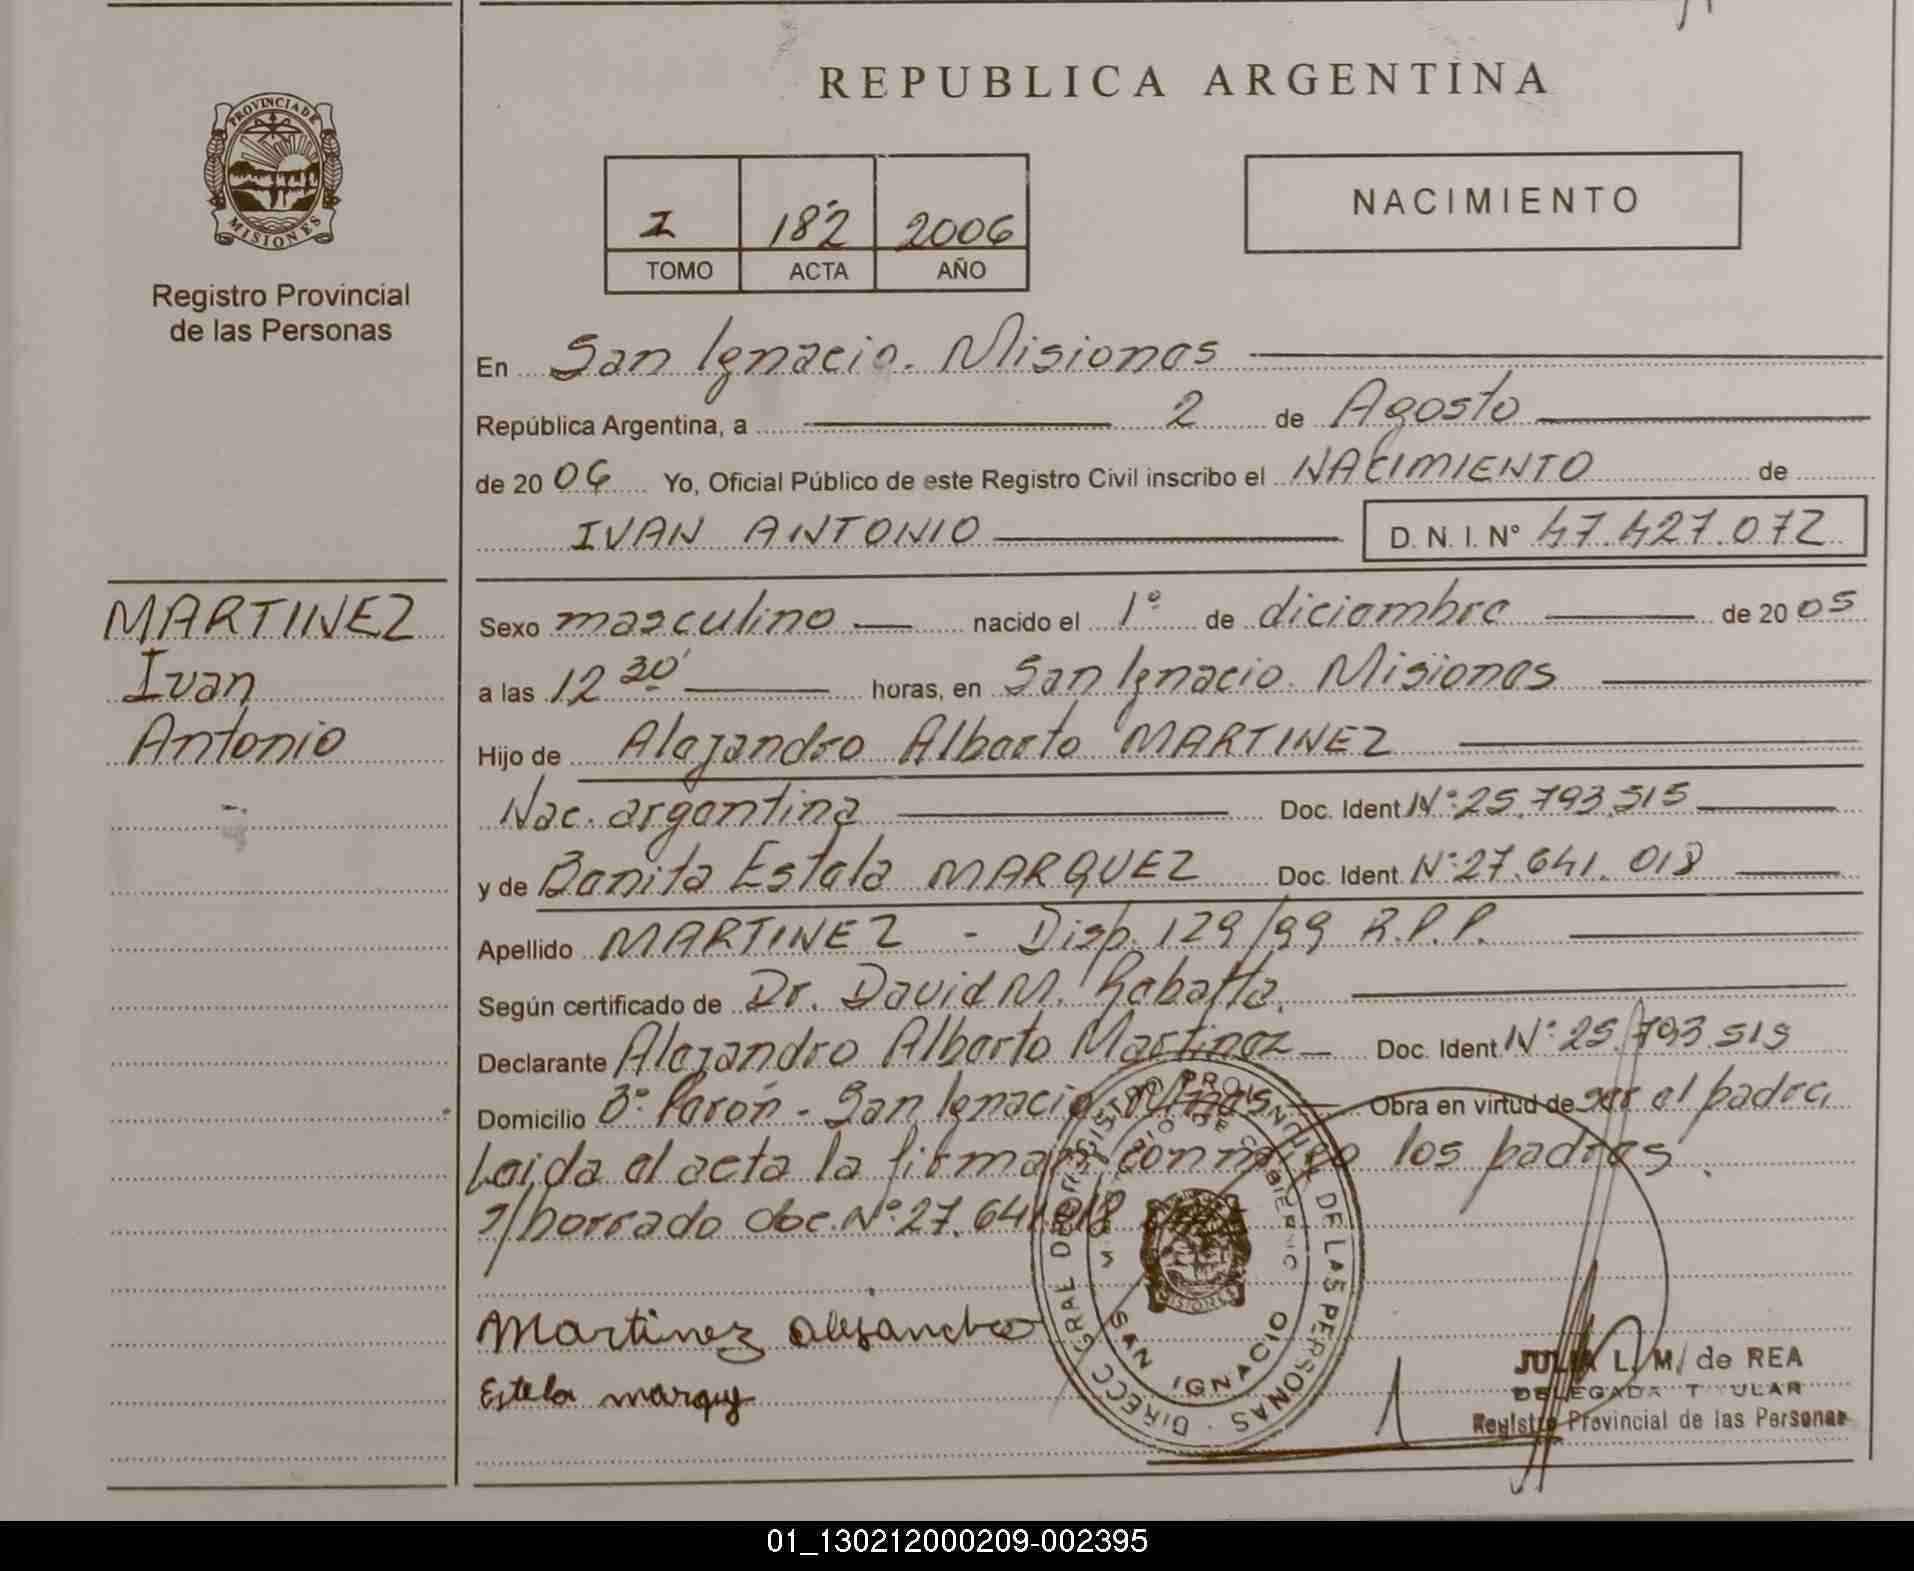 REPUBLICA ARGENTINA
PROVINCIA DE
MISIONES
Registro Provincial
de las Personas
I 182 2006
TOMO ACTA AÑO
NACIMIENTO
En San Ignacio. Misiones
República Argentina, a 2 de Agosto
de 20 06 Yo, Oficial Público de este Registro Civil inscribo el NACIMIENTO de
IVAN ANTONIO D. N. I. N° 47.427.072
MARTINEZ
Ivan
Antonio
Sexo masculino nacido el 1° de diciembre de 20 05
a las 12 30' horas, en San Ignacio. Misiones
Hijo de Alejandro Alberto MARTINEZ
Nac. argentina Doc. Ident. N°: 25.793.515
y de Benita Estela MARQUEZ Doc. Ident. N°: 27.641.018
Apellido MARTINEZ - Disp. 129/99 R.P.P.
Según certificado de Dr. David M.
Declarante Alejandro Alberto Martinez Doc. Ident. N°: 25.793.515
Domicilio B° Perón - San Ignacio, Mnes Obra en virtud de ser el padre,
Leida el acta la firman conmigo los padres.
s/borrado doc. N° 27.641.018
Martinez Alejandro
Estela marquez
DIRECC GRAL DE REGISTRO PROVINCIAL DE LAS PERSONAS
MISIONES
SAN IGNACIO
JULIA L. M. de REA
DELEGADA TITULAR
Registro Provincial de las Personas
01_130212000209-002395